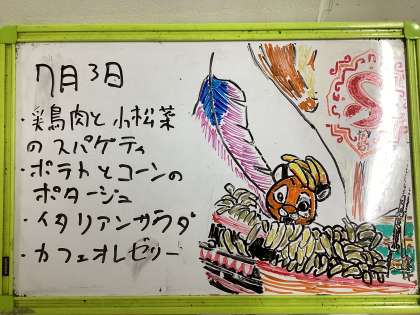 7月3日
・鶏肉と小松菜
のスパゲティ
・ポテトとコーンの
ポタージュ
・イタリアンサラダ
・カフェオレゼリー